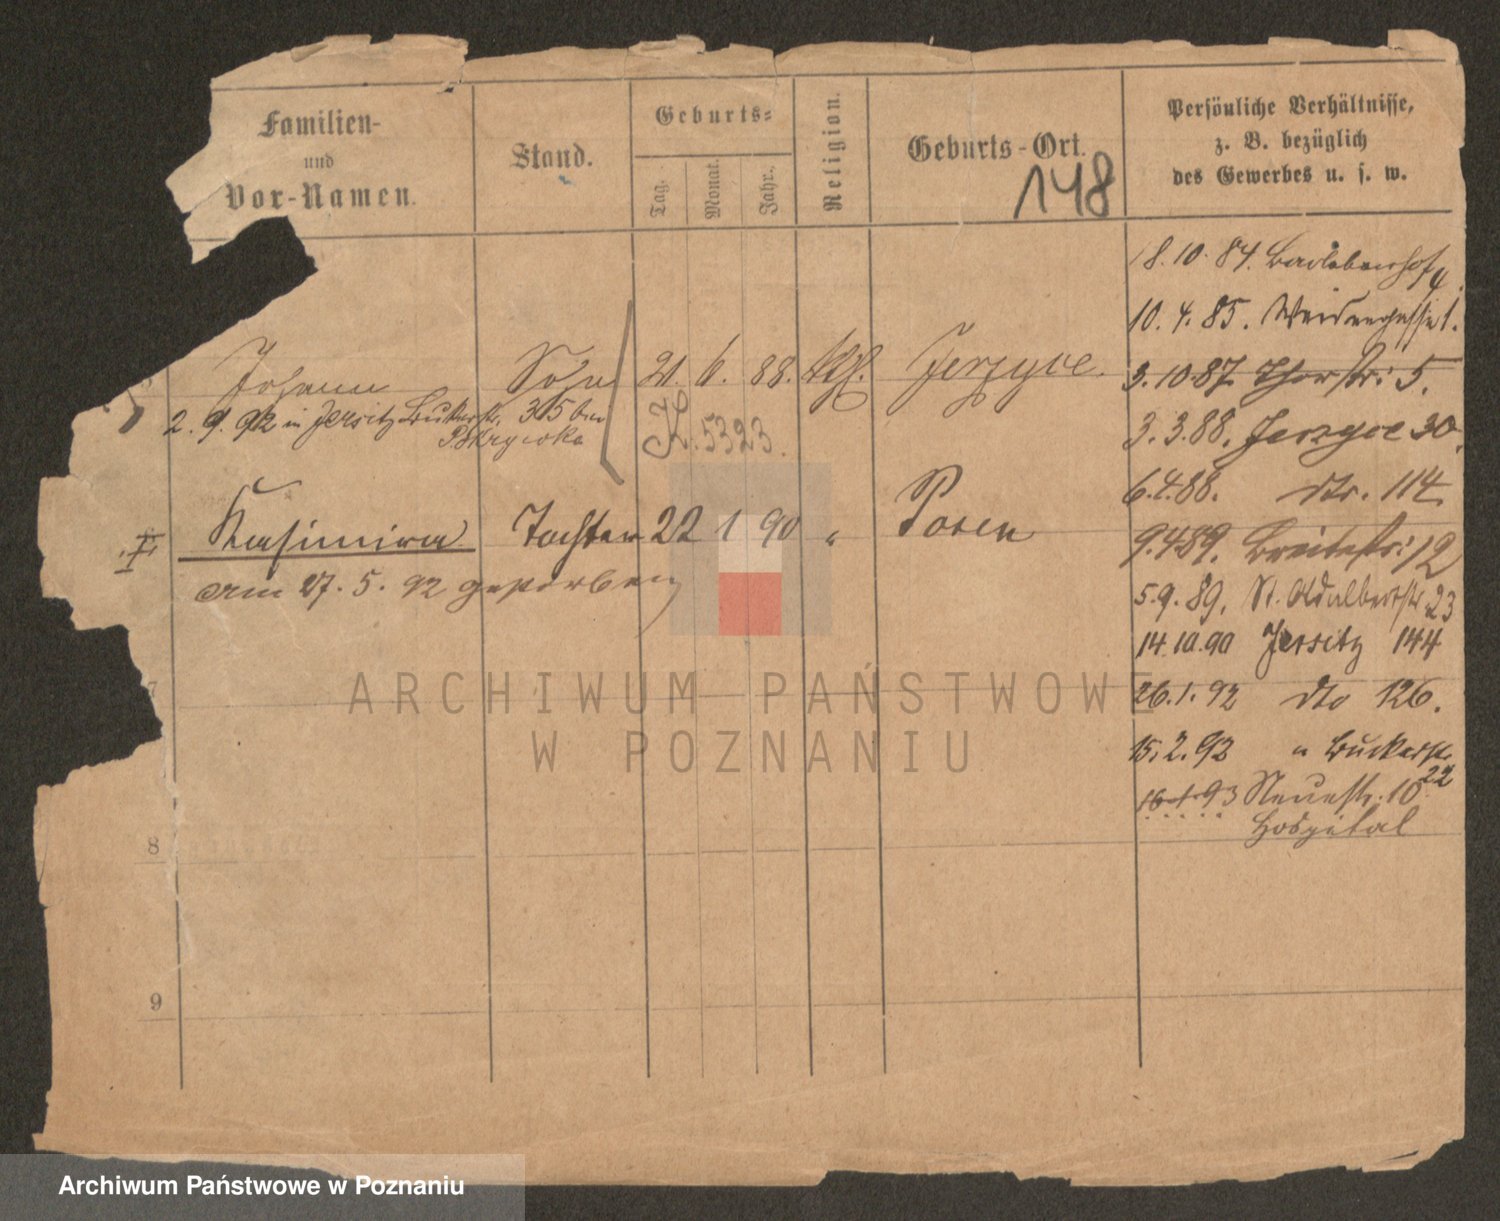 Familien-
und
Vor-Namen.
Stand.
Geburts-
Tag.
Monat.
Jahr.
Religion.
Geburts-Ort.
148
Persönliche Verhältnisse,
z. B. bezüglich
des Gewerbes u. s. w.
Johann Sohn 21. 6. 88. kth. Jerzyce.
2. 9. 92 in Jersitz Bukerstr. 35 bei
K. 5323.
Kasimira Tochter 22 1 90 " Posen
am 27. 5. 92 gestorben
8
9
18.10.84. Bartlebenshof 4.
10.4.85. Weidengasse 1.
3.10.87. Thorstr: 5.
3.3.88. Jerzyce 30.
6.4.88. dto. 114.
9.4.89. Breitestr: 12
5.9.89. St. Adalbertstr 23
14.10.90 Jersitz 144
26.1.92 dto 126.
15.2.92 " Bukerstr.
22
16.1.93 Neuestr: 10
Hospital
ARCHIWUM PAŃSTWOWE
W POZNANIU
Archiwum Państwowe w Poznaniu